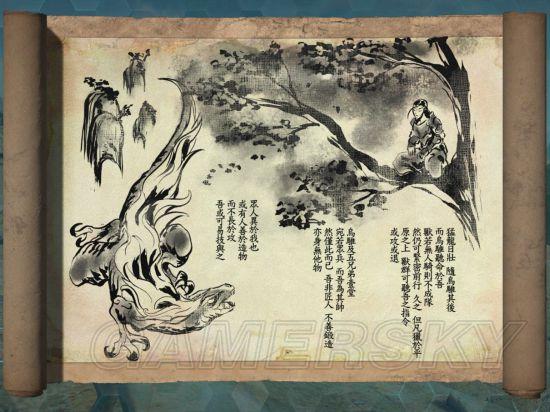 猛龍日壯 隨烏騅其後
而烏騅聽命於吾
獸若無人騎則不成隊
然仍可緊密前行 久之 但凡獵於平
原之上 獸群可聽吾之指令
或攻或退
烏騅及五兄弟壹堂
宛若眾兵 而吾為其師
然僅此而已 吾非匠人 不善鍛造
亦身無他物
眾人異於我也
或有人善於造物
而不長於攻
吾或可易技與之
GAMERSKY